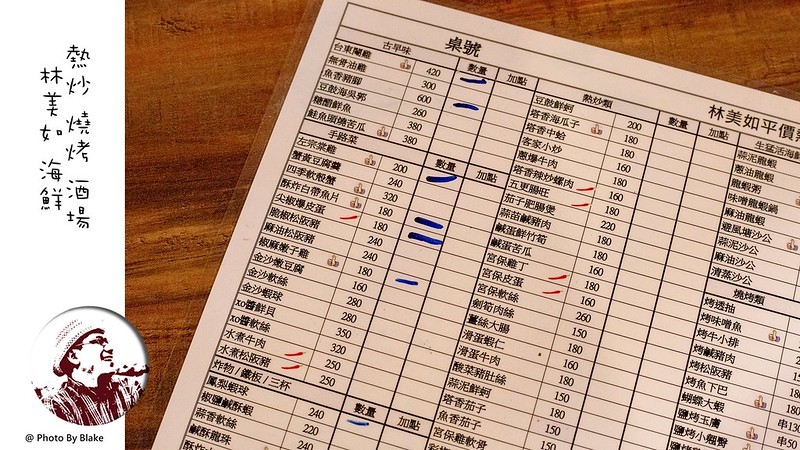 熱炒 燒烤 酒場
林美如 海鮮
@ Photo By Blake
桌號
林美如平價
古早味 數量 加點
台東閹雞 420
無骨油雞 300
魚香豬腳 600
豆豉海吳郭 260
糖醋鮮魚 380
鮭魚頭燒苦瓜 380
手路菜 數量 加點
左宗棠雞 200
蟹黃豆腐羹 240
四季軟殼蟹 320
酥炸白帶魚片 180
尖椒爆皮蛋 180
脆椒松阪豬 240
麻油松阪豬 240
椒麻嫩子雞 180
金沙嫩豆腐 160
金沙軟絲 280
金沙蝦球 280
xo醬鮮貝 350
xo醬軟絲 320
水煮牛肉 250
水煮松阪豬 250
炸物/鐵板/三杯 數量 加點
鳳梨蝦球 240
椒鹽鹹酥蝦 220
蒜香軟絲 240
鹹酥龍珠
熱炒類 數量 加點
豆豉鮮蚵 200
塔香海瓜子 180
塔香中蛤 180
客家小炒 180
蔥爆牛肉 180
塔香辣炒螺肉 160
五更腸旺 180
茄子肥腸煲 180
蒜苗鹹豬肉 220
鹹蛋鮮竹筍 180
鹹蛋苦瓜 160
宮保雞丁 180
宮保皮蛋 160
宮保軟絲 260
劍筍肉絲 150
薑絲大腸 180
滑蛋蝦仁 180
滑蛋牛肉 180
酸菜豬肚絲 150
蒜泥鮮蚵 180
塔香茄子 150
魚香茄子 150
宮保雞軟骨
生猛活海鮮
蒜泥龍蝦
蔥油龍蝦
龍蝦粥
味噌龍蝦鍋
麻油龍蝦
避風塘沙公
蒜泥沙公
麻油沙公
清蒸沙公
燒烤類
烤透抽
烤味噌魚
烤牛小排
烤鹹豬肉
烤松阪豬
烤魚下巴
蝴蝶大蝦
鹽烤玉膚
鹽烤小翅臀